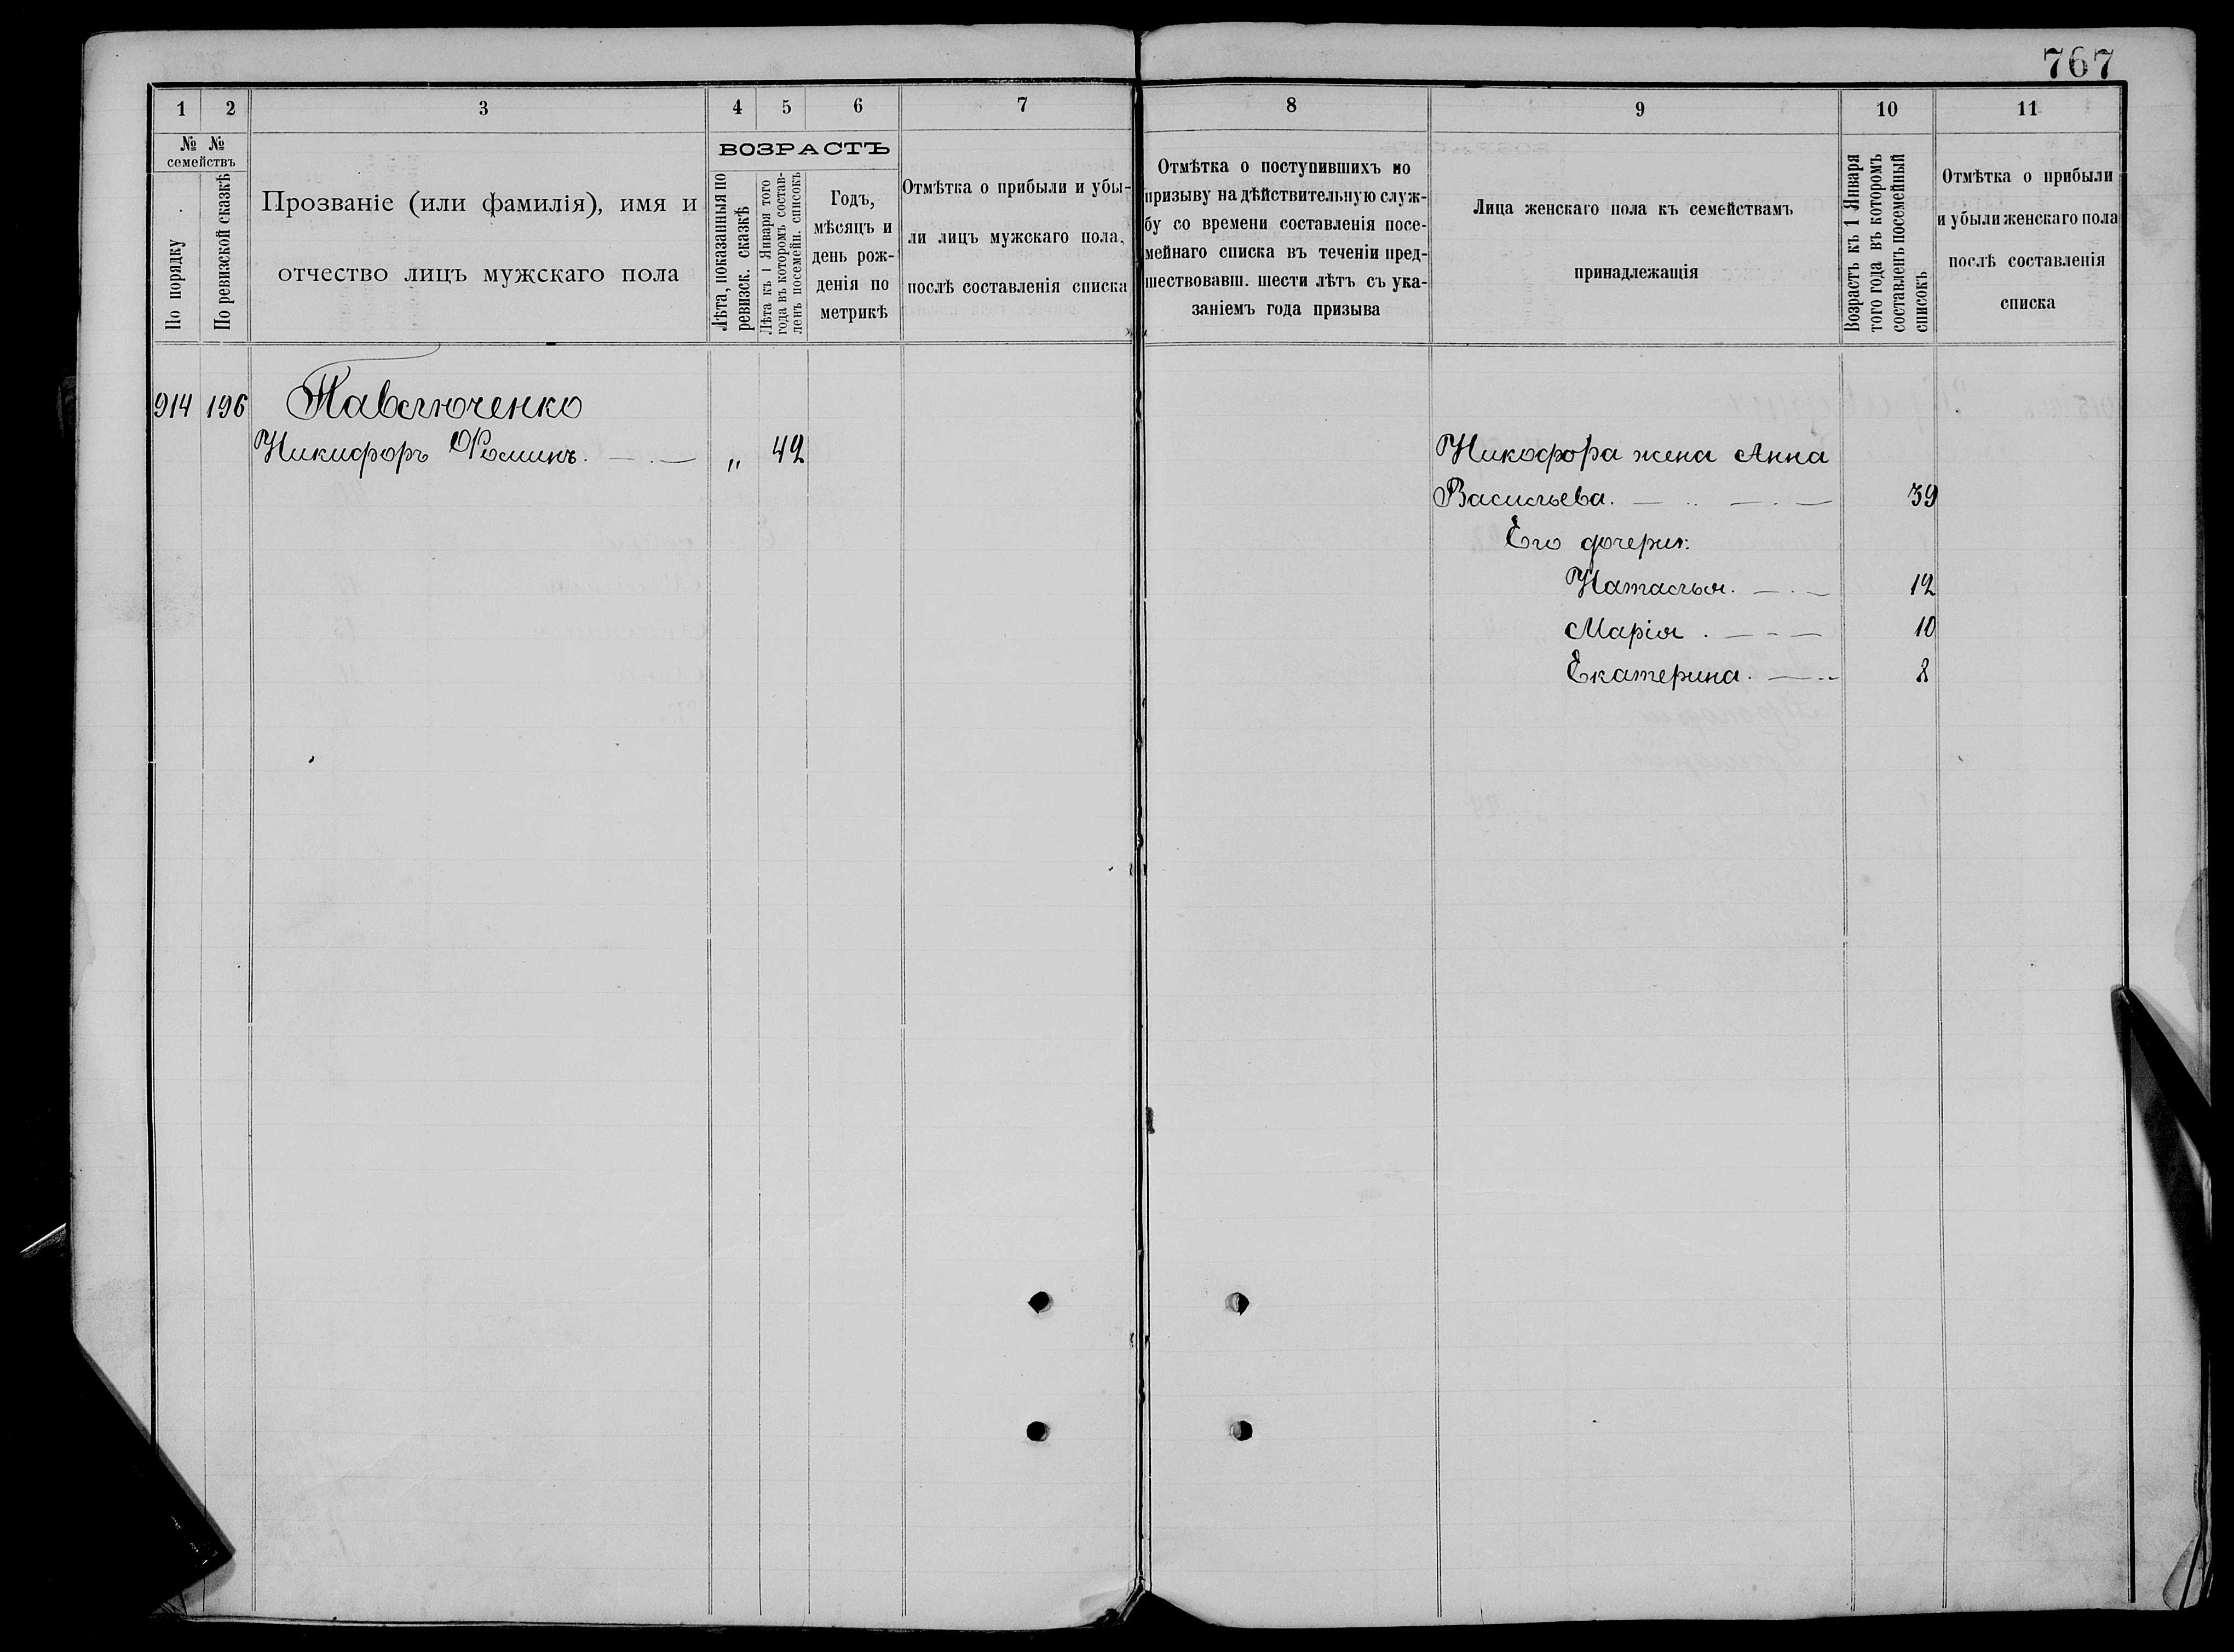 767
1 2 3 4 5 6 7
№ № семействъ
По порядку
По ревизской сказкѣ
Прозваніе (или фамилія), имя и
отчество лицъ мужскаго пола
ВОЗРАСТЪ
Лѣта, показанныя по
ревизск. сказкѣ
Лѣта къ 1 Января того
года въ которомъ состав-
ленъ посемейн. списокъ
Годъ,
мѣсяцъ и
день рож-
денія по
метрикѣ
Отмѣтка о прибыли и убы-
ли лицъ мужскаго пола,
послѣ составленія списка
914 196 Павлюченко
Никифоръ Ѳоминъ. „ 42
8 9 10 11
Отмѣтка о поступившихъ по
призыву на дѣйствительную служ-
бу со времени составленія посе-
мейнаго списка въ теченіи пред-
шествовавш. шести лѣтъ съ ука-
заніемъ года призыва
Лица женскаго пола къ семействамъ
принадлежащія
Возрастъ къ 1 Января
того года въ которомъ
составленъ посемейный
списокъ
Отмѣтка о прибыли
и убыли женскаго пола
послѣ составленія
списка
Никофора жена Анна
Васильева. 39
Его дочери:
Наталья. 12
Марія. 10
Екатерина. 8